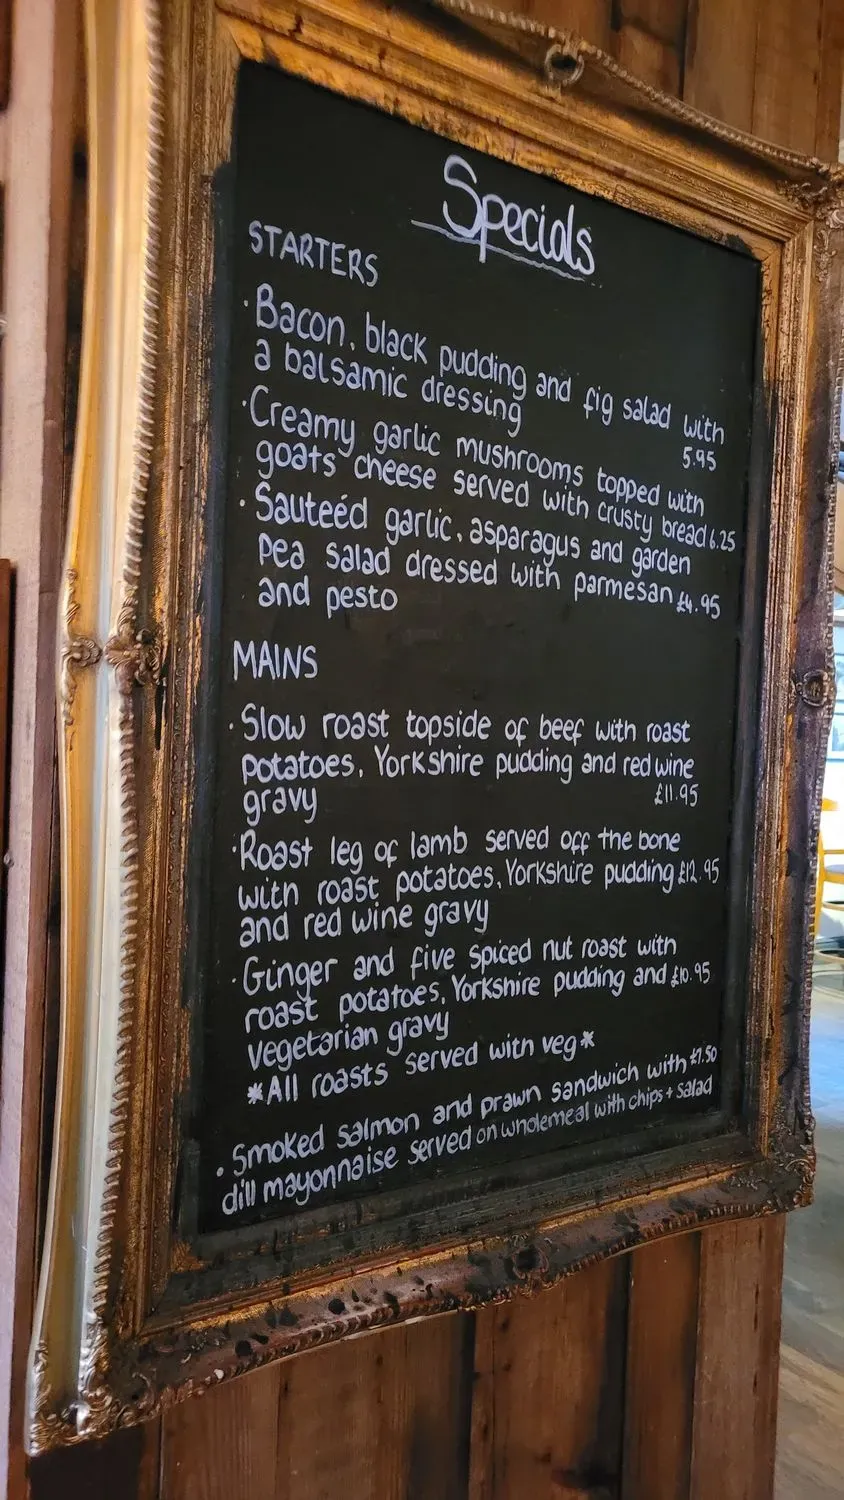 Specials
STARTERS
· Bacon, black pudding and fig salad with
a balsamic dressing 5.95
· Creamy garlic mushrooms topped with
goats cheese served with crusty bread 6.25
· Sauteéd garlic, asparagus and garden
pea salad dressed with parmesan £4.95
and pesto
MAINS
· Slow roast topside of beef with roast
potatoes, Yorkshire pudding and red wine
gravy £11.95
· Roast leg of lamb served off the bone
with roast potatoes, Yorkshire pudding £12.95
and red wine gravy
· Ginger and five spiced nut roast with
roast potatoes, Yorkshire pudding and £10.95
vegetarian gravy
*All roasts served with veg*
· Smoked salmon and prawn sandwich with £7.50
dill mayonnaise served on wholemeal with chips + salad